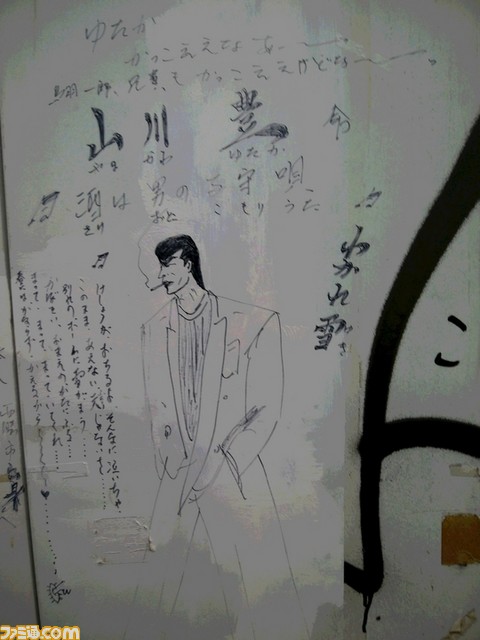 ゆたか
かっこええなあー〜。
鳥羽一郎、兄貴もかっこええけどな〜〜。
山川豊 命
やま かわ ゆたか
♪ 酒は男の子守唄 ♪
わかれ雪
ゆき
♪ けしょうがおちるよ そんなに泣いちゃ……
このまま、あえない 気になっちまう……
別れのホームに雪がまう……
おまえのかたにふる…
まって、まって、まっていてくれ……
ファミ通.com